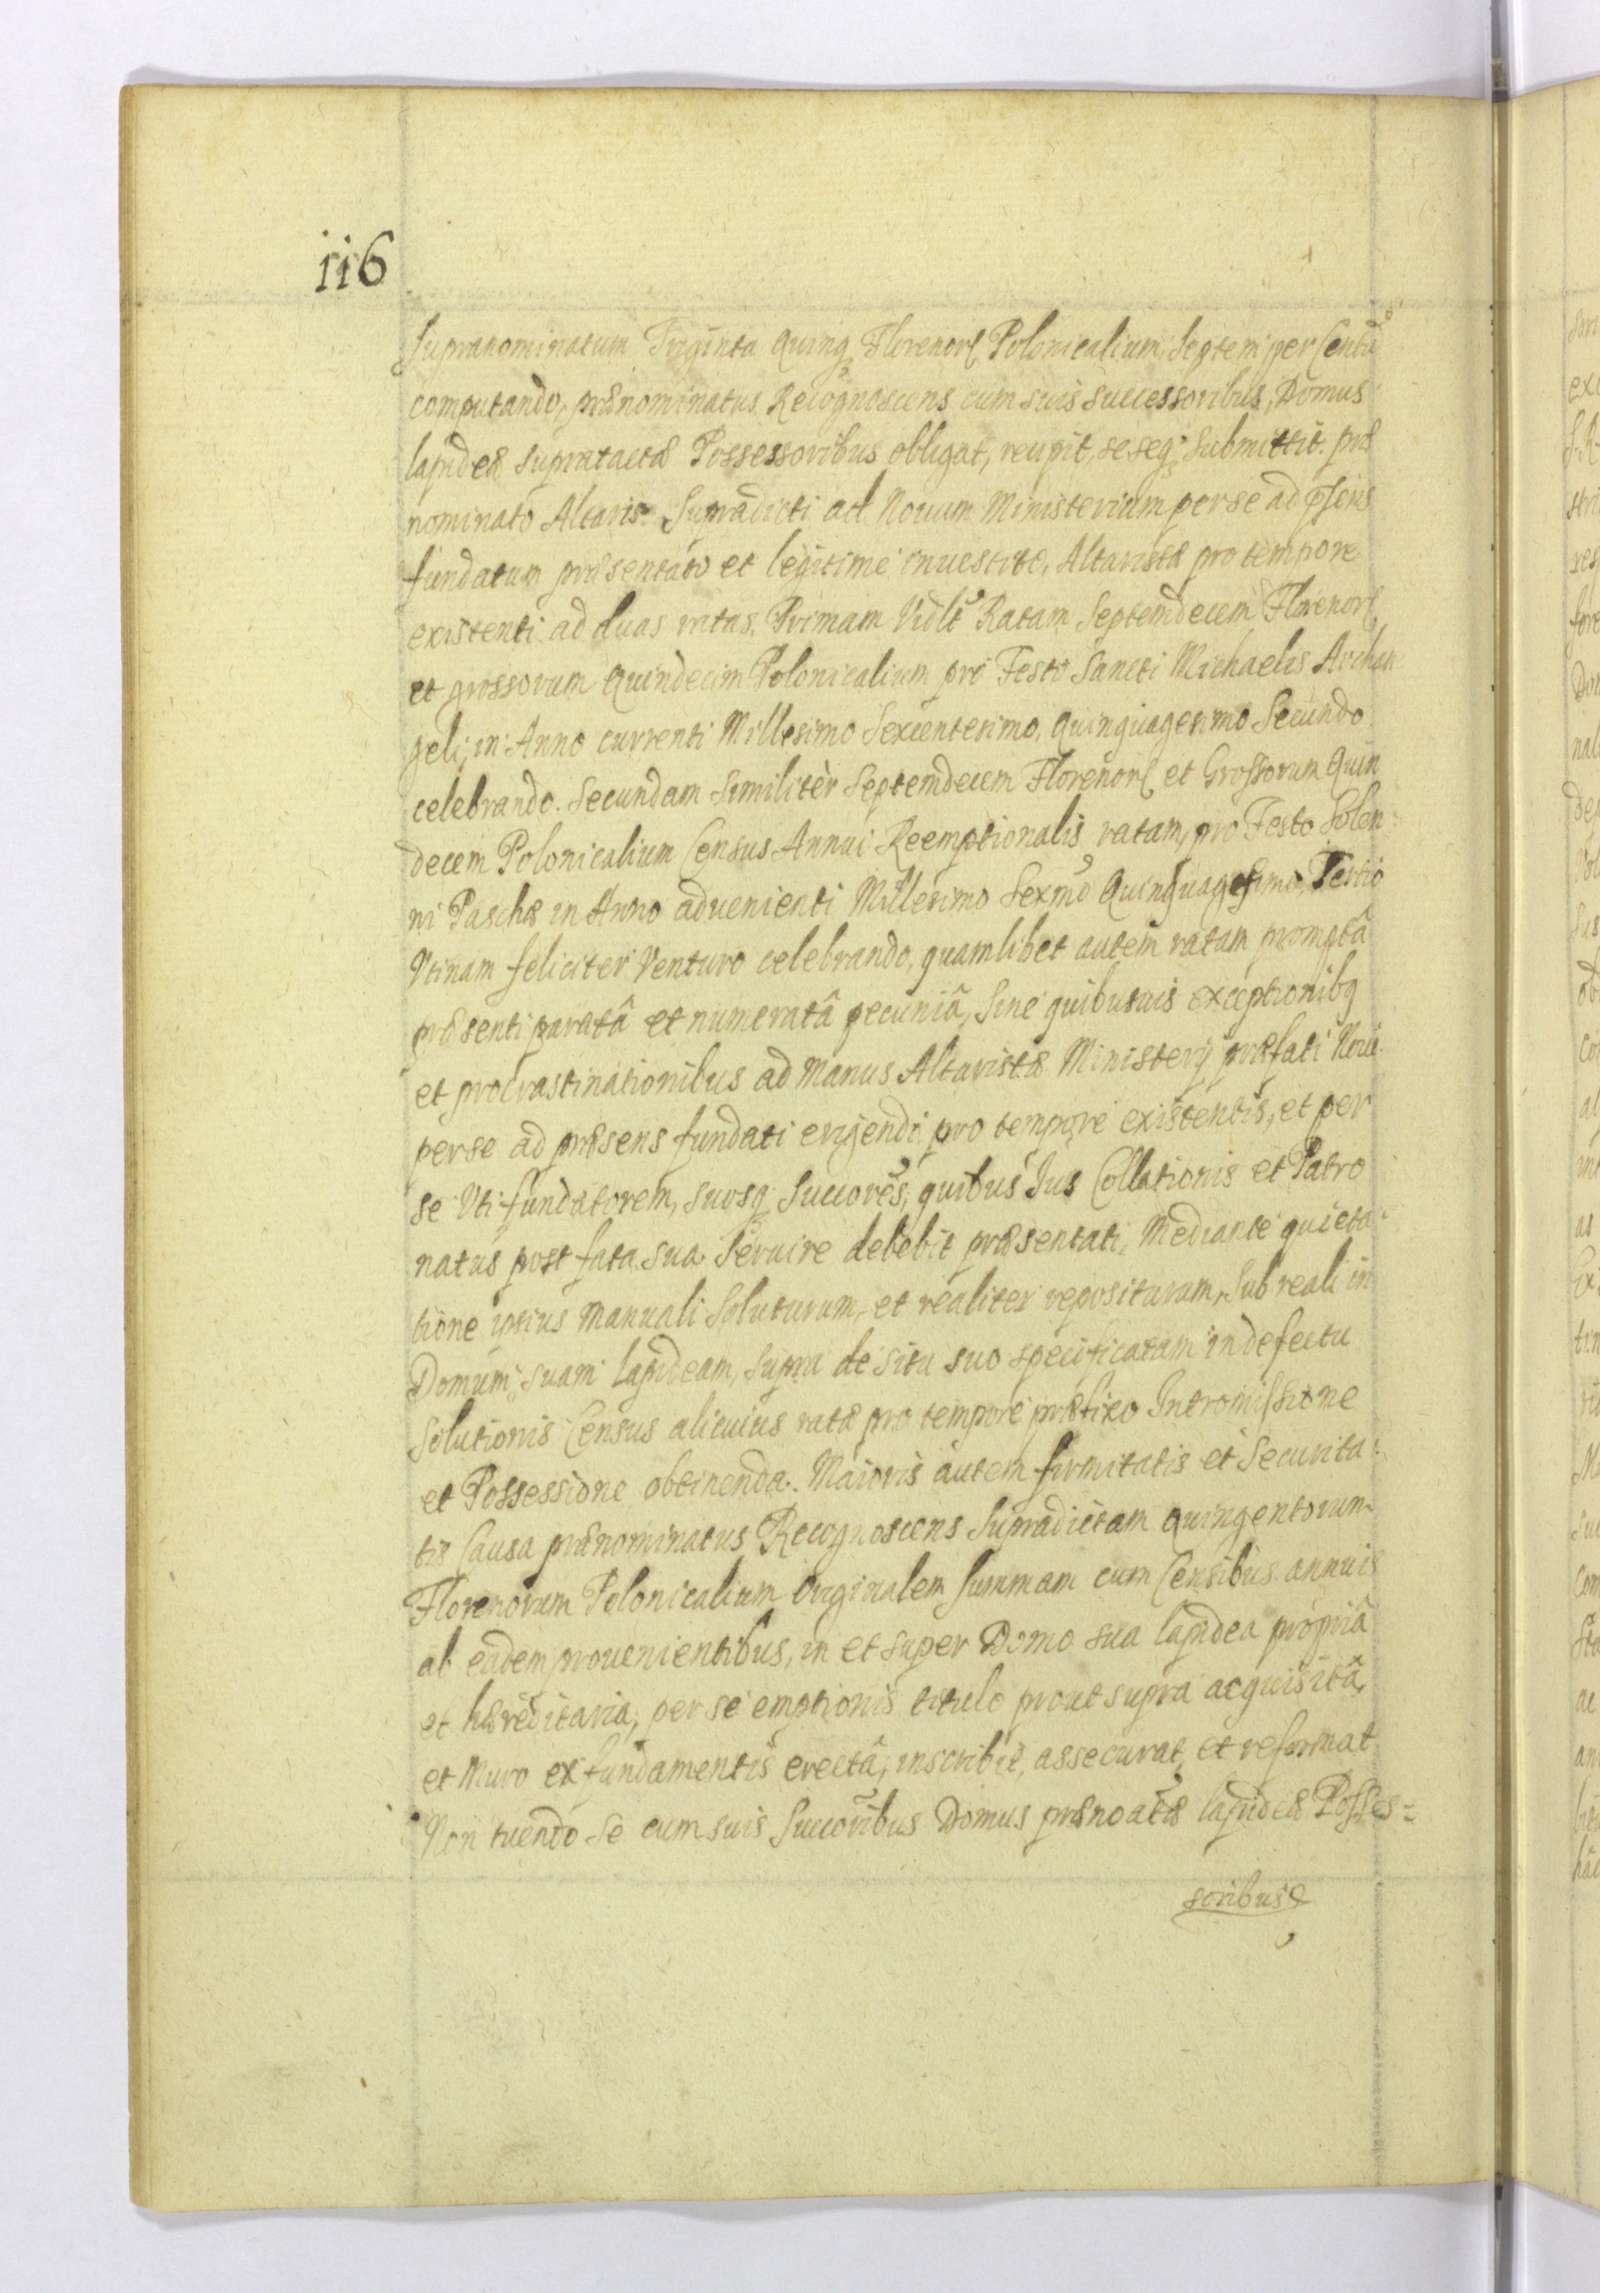 116
supranominatum Triginta Quinq Florenorl Polonicalium, Septem per Centũ
computando, prænominatus Recognoscens cum suis successoribus, Domus
lapideæ supratactæ Possessoribus obligat, recipit, seseq submittit. præ
nominato Altaris Supradicti ad Nouum Ministerium per se ad pñsens
fundatum præsentato et legitime inuestito, Altaristæ pro tempore
existenti ad duas ratas. Primam Vidlt Ratam Septemdecem Florenorl
et grossorum Quindecim Polonicalium pro Festo Sancti Michaelis Archan
geli, in Anno currenti Millesimo Sexcentesimo, Quinquagesimo Secundo
celebrando. Secundam Similitèr Septemdecem Florenorl et Grossorum Quin
decem Polonicalium Census Annui Reemptionalis ratam, pro Festo Solen
ni Paschæ in Anno aduenienti Millesimo Sexmo Quinquagesimo, Tertio
Vtinam feliciter Venturo celebrando, quamlibet autem ratam promptâ
præsenti paratâ et numeratâ pecuniâ, Sine quibusuis exceptionibq
et procrastinationibus ad manus Altaristæ Ministerij præfati Noui
per se ad præsens fundati erigendi pro tempore existentis, et per
se Vti fundatorem, suosq Succores, quibus Jus Collationis et Patro
natus post fata sua Seruire debebit præsentati, Mediante quieta
tione ipsius Manuali Soluturum, et realiter repositurum, Sub reali in
Domum, suam lapideam, supra de situ suo specificatam in defectu
Solutionis Census alicuius ratæ pro tempore præfixo Intromissione
et Possessione obtinenda. Maioris autem firmitatis et Securita:
tis Causa prænominatus Recognoscens Supradictam Quingentorum
Florenorum Polonicalium Originalem Summam cum Censibus annuis
ab eadem prouenientibus, in et super Domo sua lapidea propriâ
et hæreditaria, per se emptionis titulo prout supra acquisitâ,
et Muro ex fundamentis erectâ, inscribit, assecurat, et reformat
Non tuendo se cum suis Succoribus Domus prænoatæ lapideæ Posses=
soribus